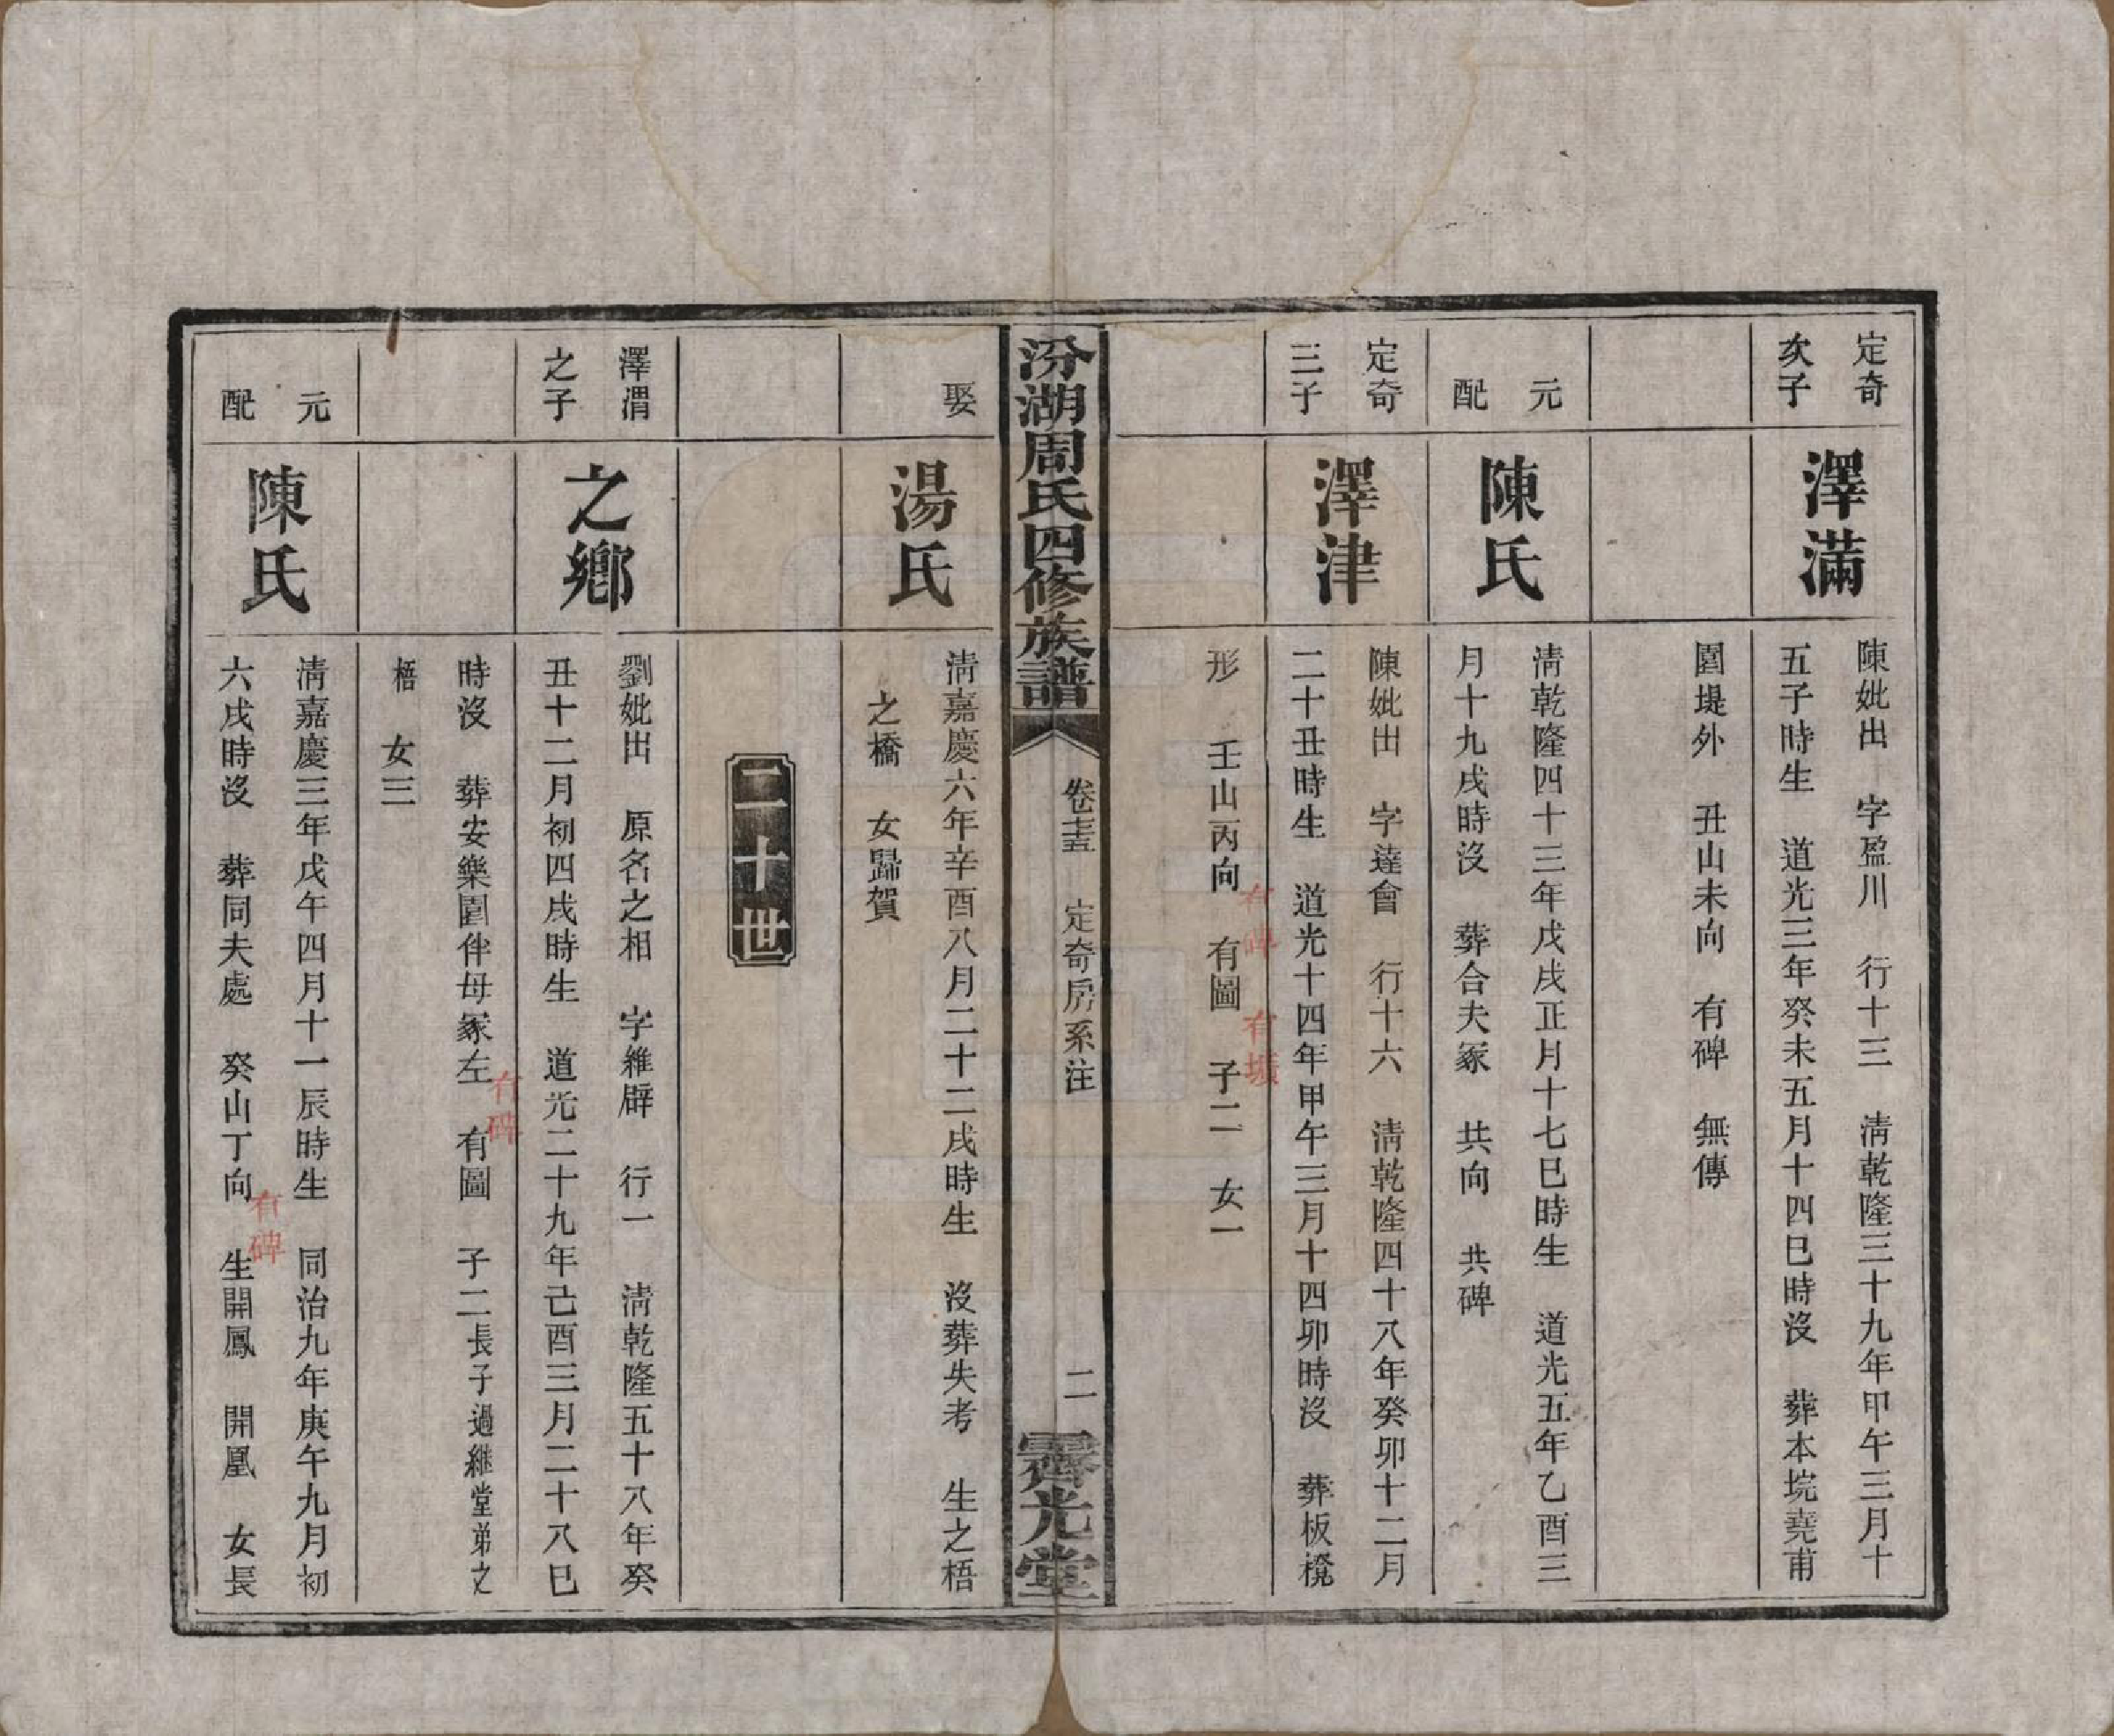 定奇
次子
澤滿
陳妣出　字盈川　行十三　清乾隆三十九年甲午三月十
五子時生　道光三年癸未五月十四巳時沒　葬本垸堯甫
圍堤外　丑山未向　有碑　無傳
元
配
陳氏
清乾隆四十三年戊戌正月十七巳時生　道光五年乙酉三
月十九戌時沒　葬合夫冢　共向　共碑
定奇
三子
澤津
陳妣出　字達會　行十六　清乾隆四十八年癸卯十二月
二十丑時生　道光十四年甲午三月十四卯時沒　葬板櫈
形　壬山丙向　有圖　子二　女一
有碑　有壙
汾湖周氏四修族譜
卷十三五　定奇房系注
二
霽光堂
娶
湯氏
清嘉慶六年辛酉八月二十二戌時生　沒葬失考　生之梧
之橋　女歸賀
二十世
澤渭
之子
之鄉
劉妣出　原名之相　字維辟　行一　清乾隆五十八年癸
丑十二月初四戌時生　道光二十九年己酉三月二十八巳
時沒　葬安樂圍伴母冢左　有圖　子二長子過繼堂弟之
有碑
梧　女三
元
配
陳氏
清嘉慶三年戊午四月十一辰時生　同治九年庚午九月初
六戌時沒　葬同夫處　癸山丁向　生開鳳　開凰　女長
有碑